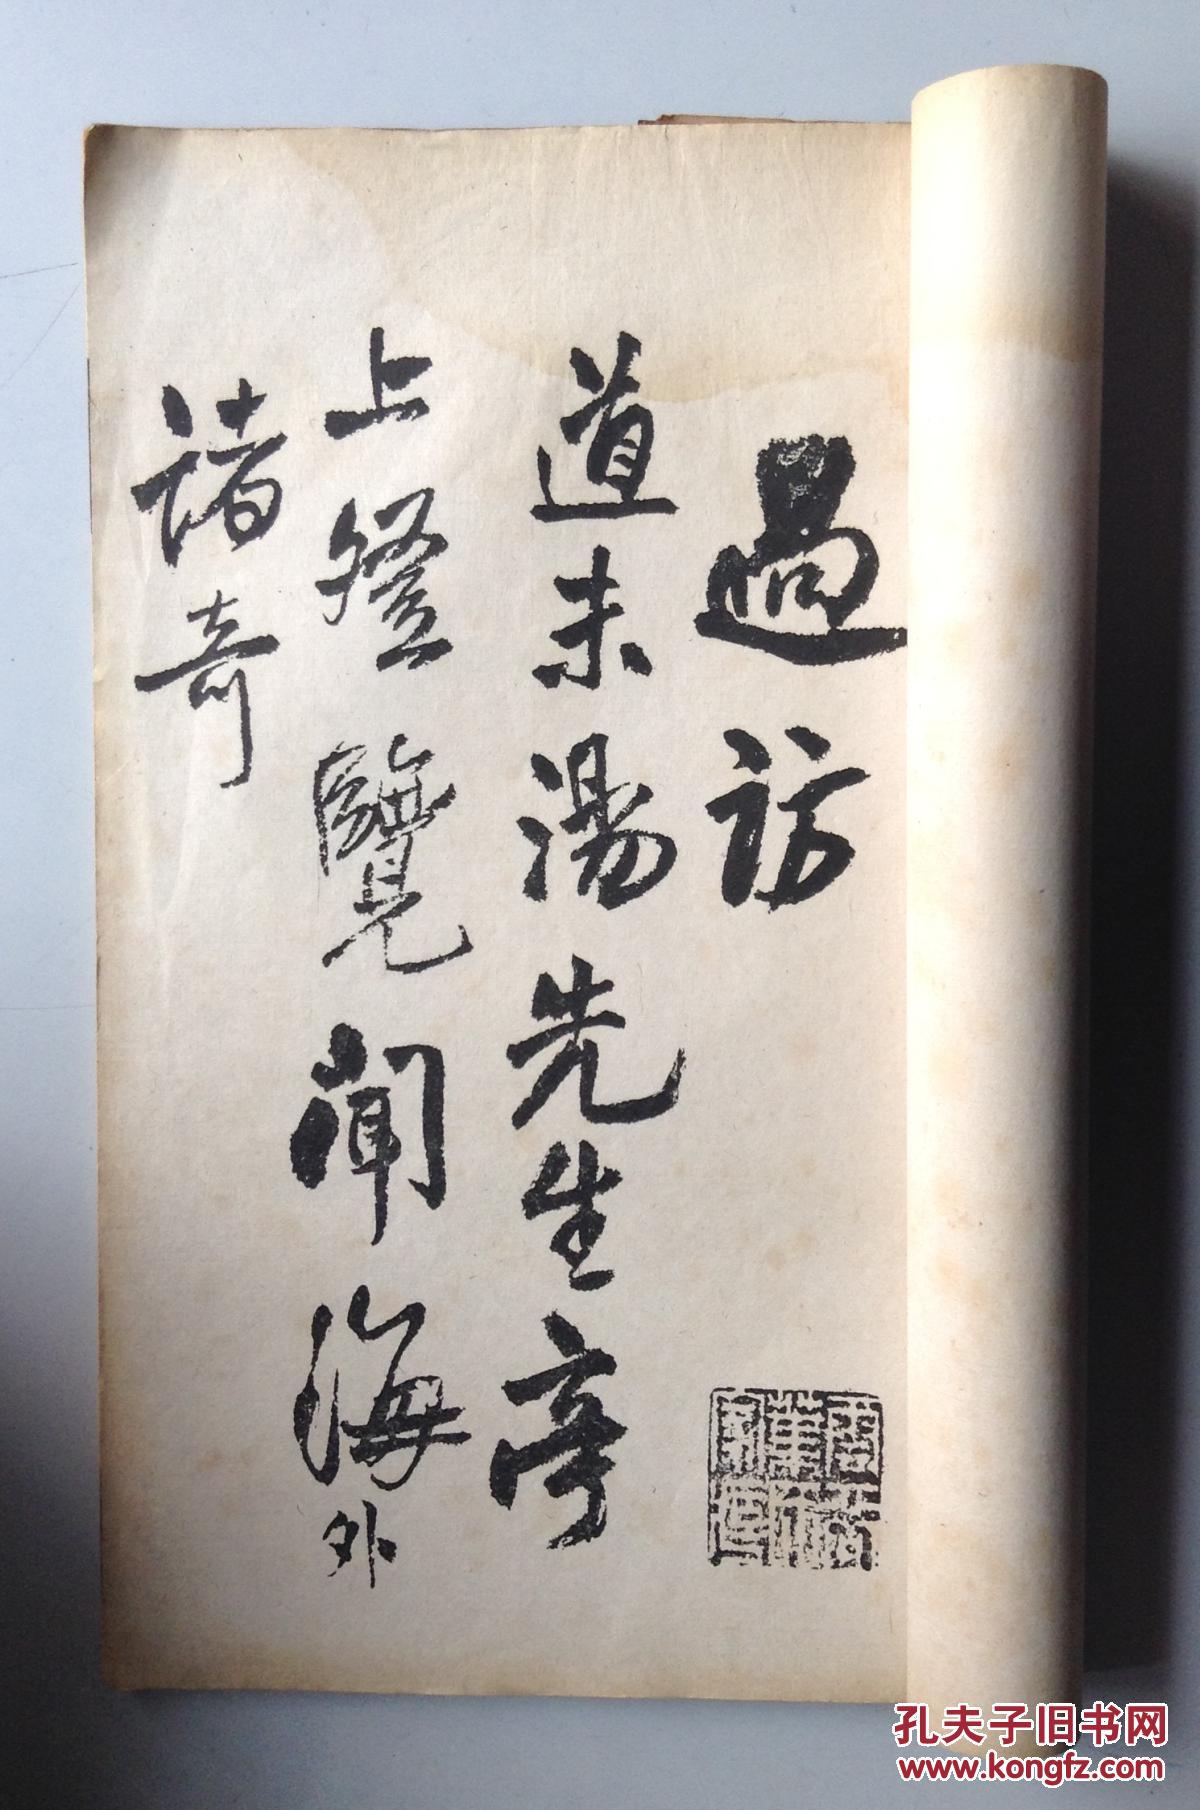 過訪
道未湯先生亭
上登覽聞海外
諸奇
孔夫子旧书网
www.kongfz.com